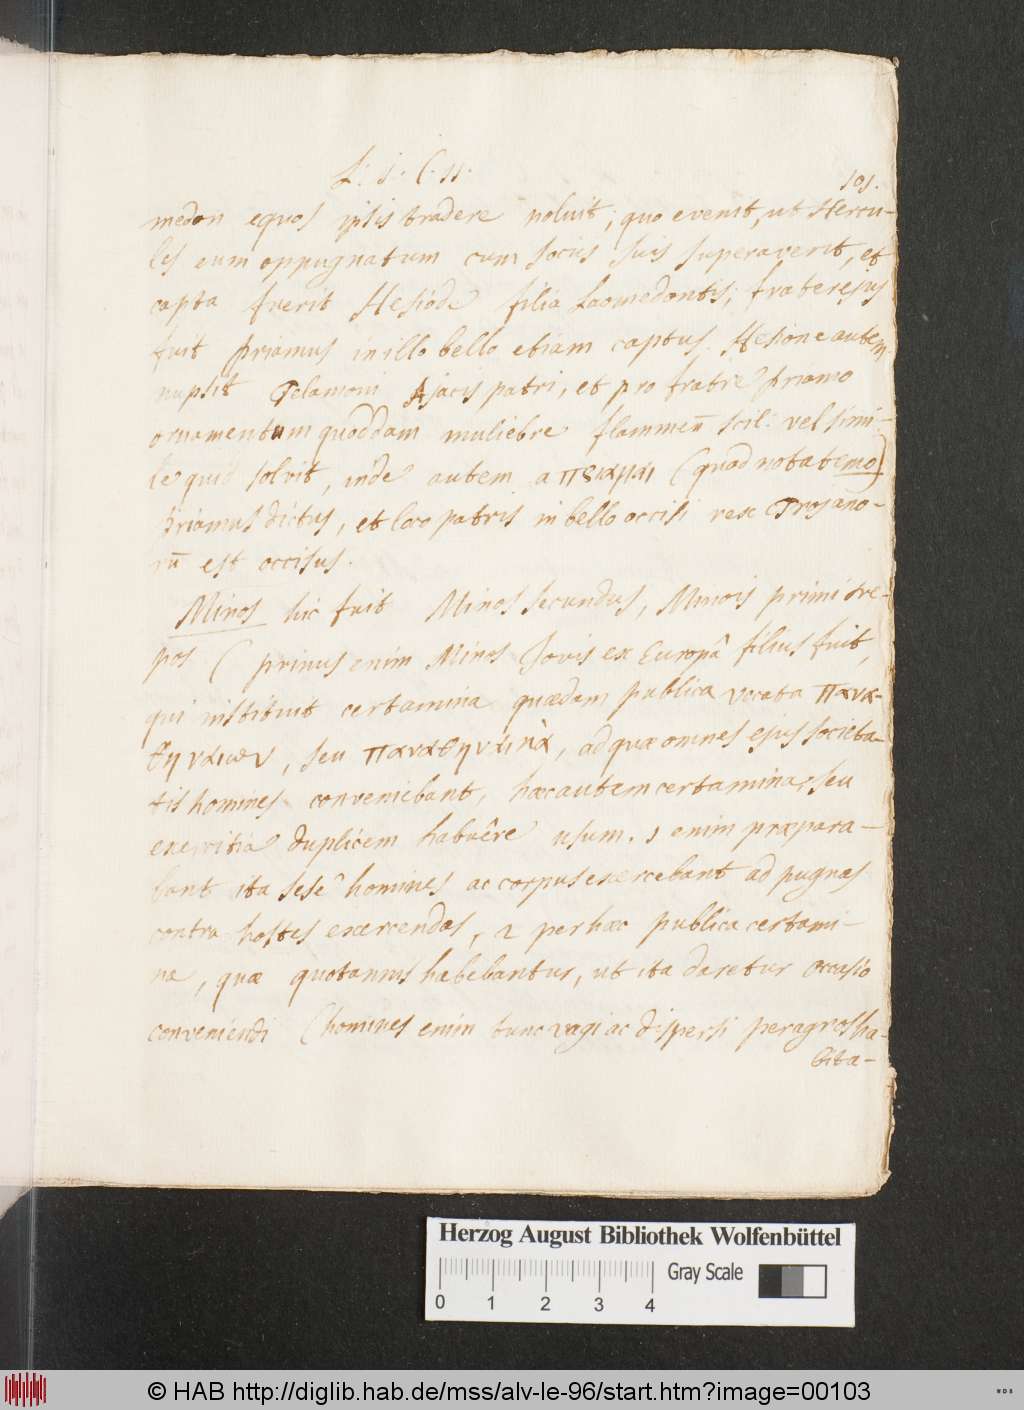 L. 1. C. 11.
101.
medon equos ipsis tradere noluit; quo evenit, ut Hercu-
les eum oppugnatum cum sociis suis superaverit, et
capta fuerit Hesiode filia Laomedontis; frater ejus
fuit Priamus in illo bello etiam captus. Hesione autem
nupsit Telamoni Ajacis patri, et pro fratre Priamo
ornamentum quoddam muliebre flammeū scil: vel simi-
le quid solvit, inde autem a πειαμαι (quod nota temo)
Priamus dictus, et loco patris in bello occisi rex Trojano-
rū est occisus.
Minos hic fuit Minos secundus, Minois primi ne-
pos (primus enim Minos Jovis ex Europâ filius fuit,
qui instituit certamina quædam publica vocata πανα-
θηναιων, seu παναθηναικὰ, ad quæ omnes ejus societa-
tis homines conveniebant, hæc autem certamina, seu
exercitia duplicem habuêre usum. 1 enim præpara-
bant ita sesê homines ac corpus exercebant ad pugnas
contra hostes exercendas, 2 per hæc publica certami-
na, quæ quotannis habebantur, ut ita daretur occasio
conveniendi (homines enim tunc vagi ac dispersi per agros ha-
bita-
Herzog August Bibliothek Wolfenbüttel
Gray Scale
0 1 2 3 4
© HAB http://diglib.hab.de/mss/alv-le-96/start.htm?image=00103